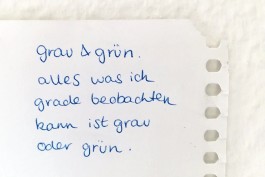 grau & grün.
alles was ich
grade beobachten
kann ist grau
oder grün.